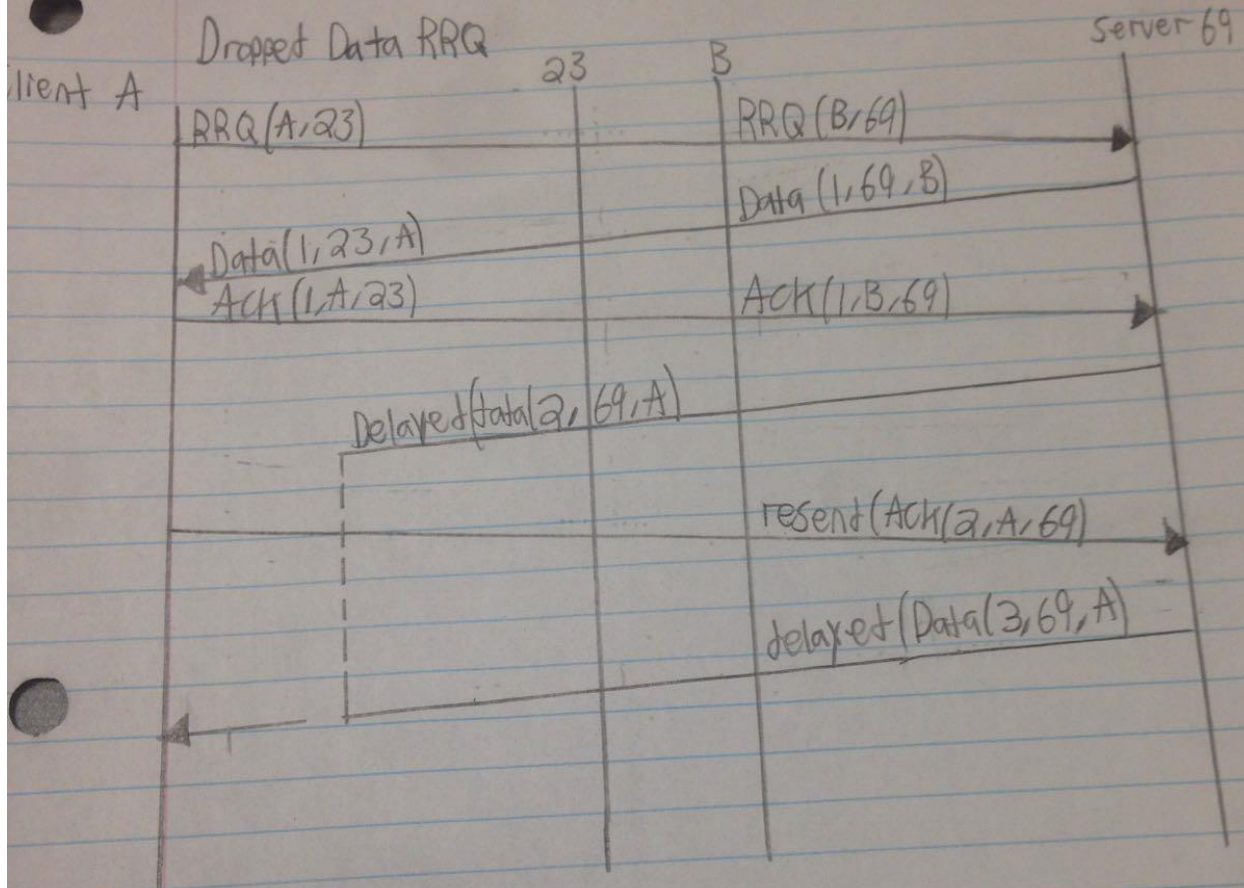 Dropped Data RRQ
23
B
Server 69
lient A
RRQ(A,23)
RRQ(B,69)
Data(1,69,B)
Data(1,23,A)
Ack(1,A,23)
Ack(1,B,69)
Delayed(data(2,69,A)
resend(Ack(2,A,69)
delayed(Data(3,69,A)